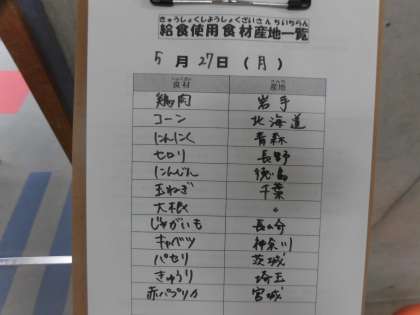 きゅうしょくしようしょくざいさんちいちらん
給食使用食材産地一覧
5月27日(月)
しょくざい さんち
食材 産地
鶏肉 岩手
コーン 北海道
にんにく 青森
セロリ 長野
にんじん 徳島
玉ねぎ 千葉
大根 〃
じゃがいも 長崎
キャベツ 神奈川
パセリ 茨城
きゅうり 埼玉
赤パプリカ 宮城